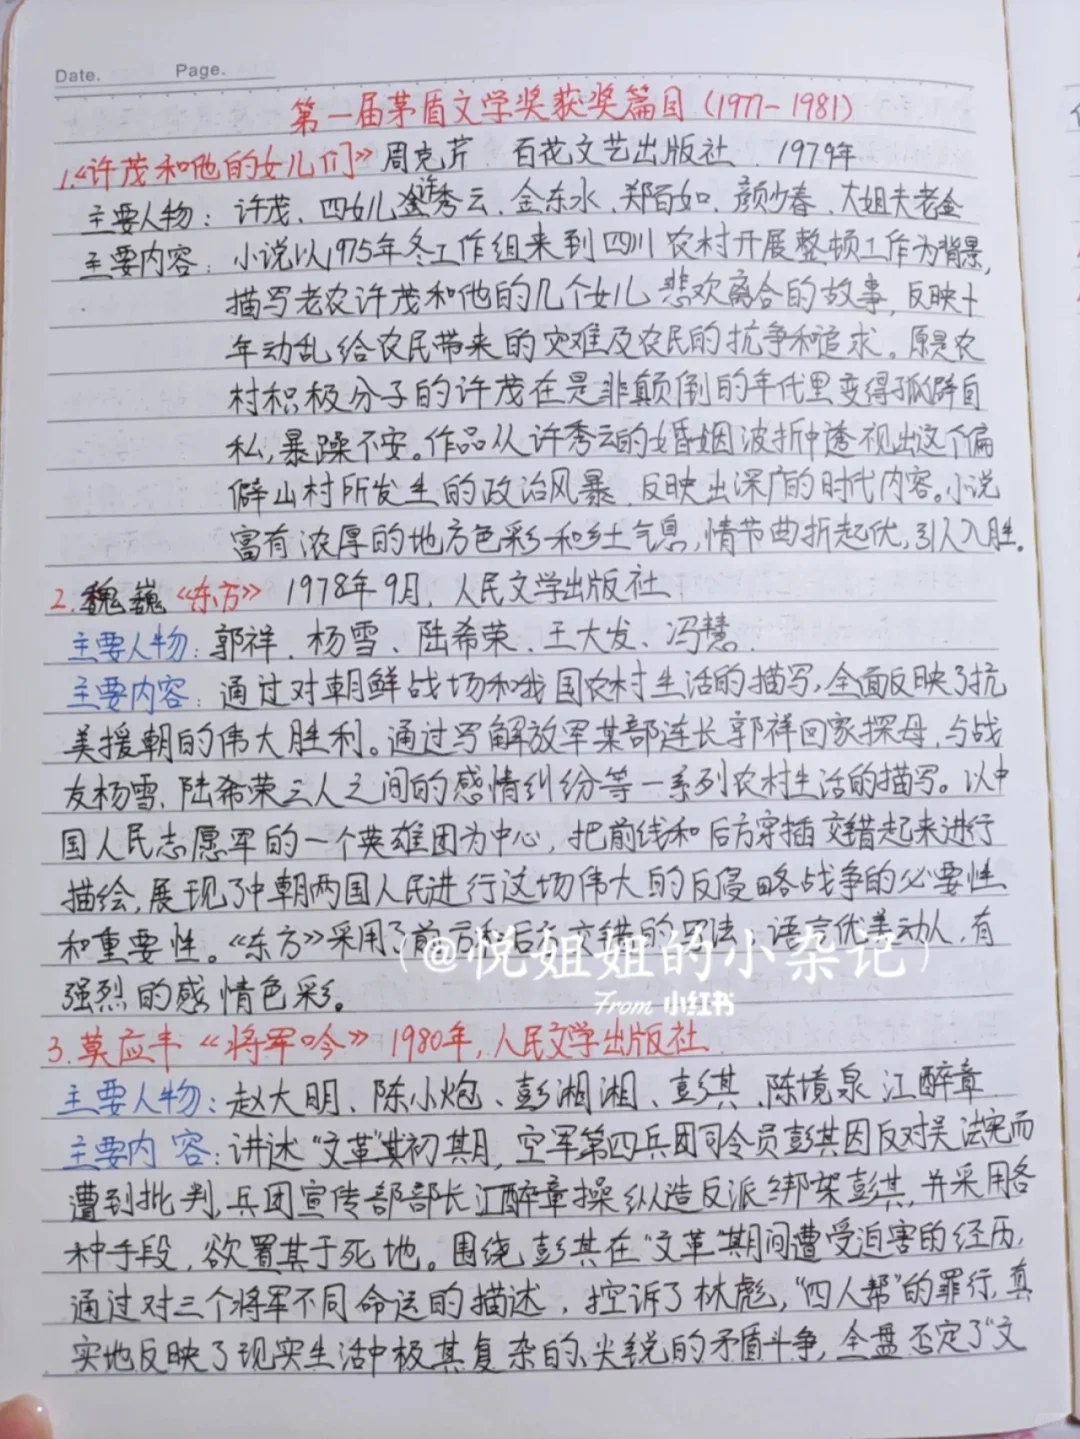 Date. Page.
第一届茅盾文学奖获奖篇目(1977-1981)
1.《许茂和他的女儿们》周克芹 百花文艺出版社 . 1979年
主要人物: 许茂、四女儿许秀云、金东水、郑百如、颜少春、大姐夫老金
主要内容: 小说以1975年冬工作组来到四川农村开展整顿工作为背景,
描写老农许茂和他的几个女儿悲欢离合的故事,反映十
年动乱给农民带来的灾难及农民的抗争和追求。原是农
村积极分子的许茂在是非颠倒的年代里变得孤僻自
私,暴躁不安。作品从许秀云的婚姻波折中透视出这个偏
僻山村所发生的政治风暴,反映出深广的时代内容。小说
富有浓厚的地方色彩和乡土气息,情节曲折起伏,引人入胜。
2.魏巍《东方》 1978年9月,人民文学出版社
主要人物: 郭祥、杨雪、陆希荣、王大发、冯慧.
主要内容: 通过对朝鲜战场和我国农村生活的描写,全面反映了抗
美援朝的伟大胜利。通过写解放军某部连长郭祥回家探母,与战
友杨雪、陆希荣三人之间的感情纠纷等一系列农村生活的描写。以中
国人民志愿军的一个英雄团为中心,把前线和后方穿插交错起来进行
描绘,展现了中朝两国人民进行这场伟大的反侵略战争的必要性
和重要性。《东方》采用了前方和后方交错的写法,语言优美动人,有
强烈的感情色彩。
(@悦姐姐的小杂记)
From 小红书
3.莫应丰《将军吟》 1980年,人民文学出版社
主要人物: 赵大明、陈小炮、彭湘湘、彭其、陈境泉 江醉章
主要内容: 讲述“文革”其初期,空军第四兵团司令员彭其因反对吴法宪而
遭到批判,兵团宣传部部长江醉章操纵造反派绑架彭其,并采用各
种手段,欲置其于死地。围绕彭其在“文革”期间遭受迫害的经历,
通过对三个将军不同命运的描述,控诉了林彪,“四人帮”的罪行,真
实地反映了现实生活中极其复杂的、尖锐的矛盾斗争,全盘否定了“文